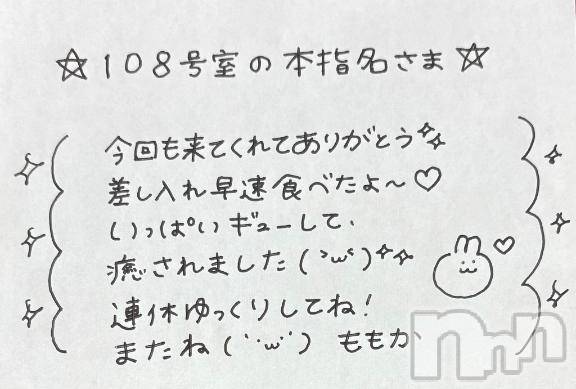 ☆108号室の本指名さま☆
今回も来てくれてありがとう
差し入れ早速食べたよ〜♡
いっぱいギューして、
癒されました(´>ω<`)
連休ゆっくりしてね!
またね(´･ω･`) ももか
nmn